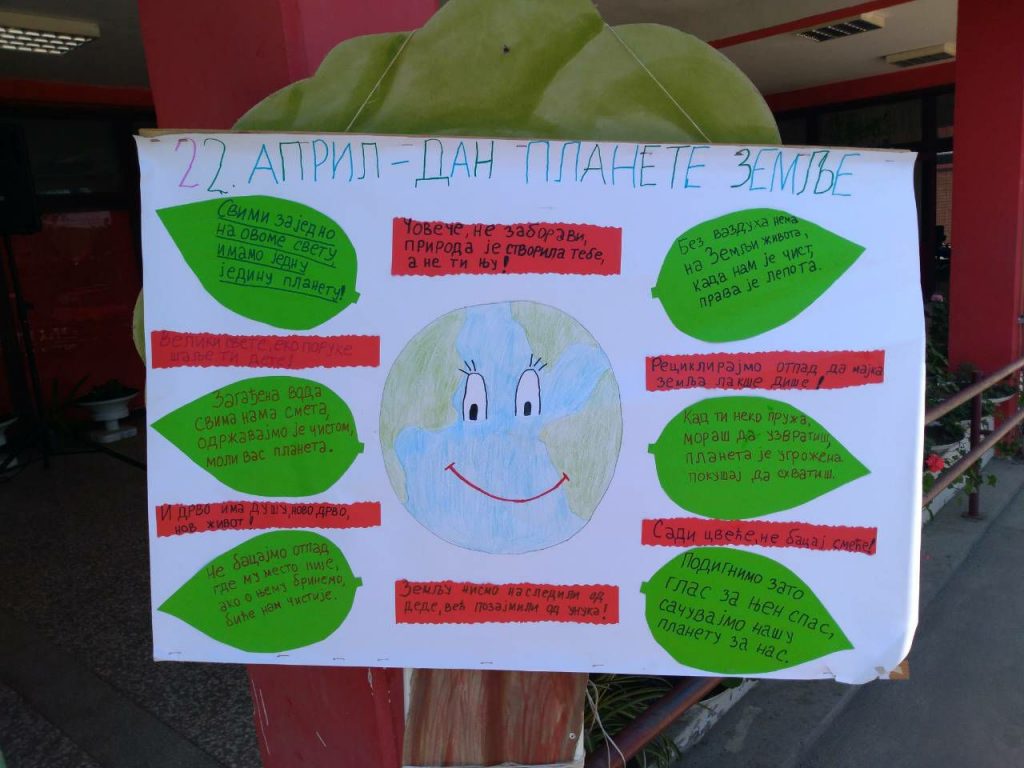 22. АПРИЛ – ДАН ПЛАНЕТЕ ЗЕМЉЕ
Свими заједно
на овоме свету
имамо једну
једину планету!
Човече, не заборави,
природа је створила тебе,
а не ти њу!
Без ваздуха нема
на Земљи живота,
када нам је чист,
права је лепота.
Велики свете, еко поруке
шаље ти дете!
Рециклирајмо отпад да мајка
Земља лакше дише!
Загађена вода
свима нама смета,
одржавајмо је чистом,
моли вас планета.
Кад ти неко пружа,
мораш да узвратиш,
планета је угрожена
покушај да схватиш.
И дрво има душу, ново дрво,
нов живот!
Сади цвеће, не бацај смеће!
Не бацајмо отпад
где му место није,
ако о њему бринемо,
биће нам чистије.
Земљу нисмо наследили од
деде, већ позајмили од унука!
Подигнимо зато
глас за њен спас,
сачувајмо нашу
планету за нас.